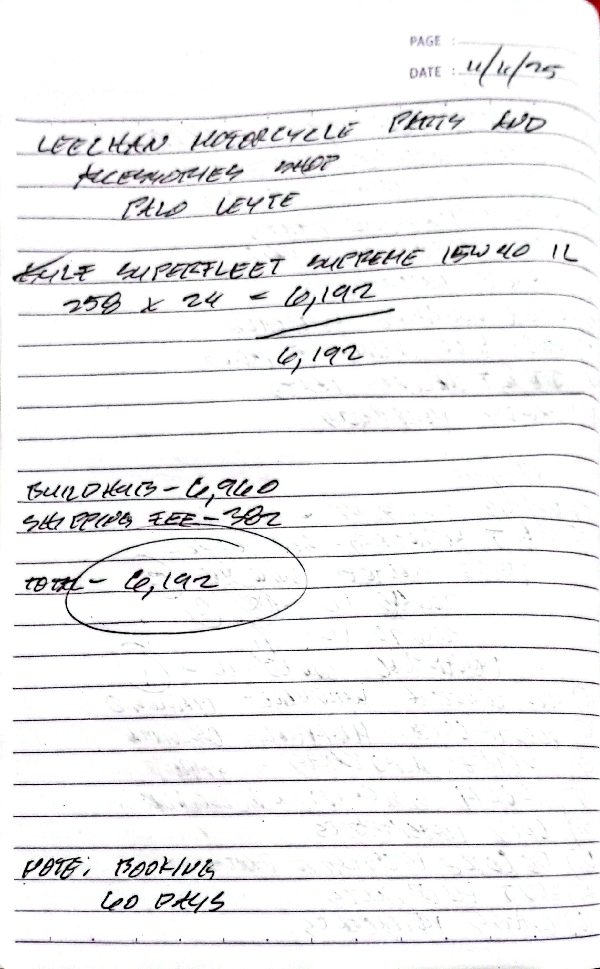 PAGE :
DATE : 11/11/25
LEECHAN MOTORCYCLE PARTS AND
ACCESSORIES SHOP
PALO LEYTE
SUPERFLEET SUPREME 15W40 1L
258 x 24 = 6,192
6,192
BUILDHUB - 6,960
SHIPPING FEE - 382
TOTAL - 6,192
NOTE: BOOKING
60 DAYS